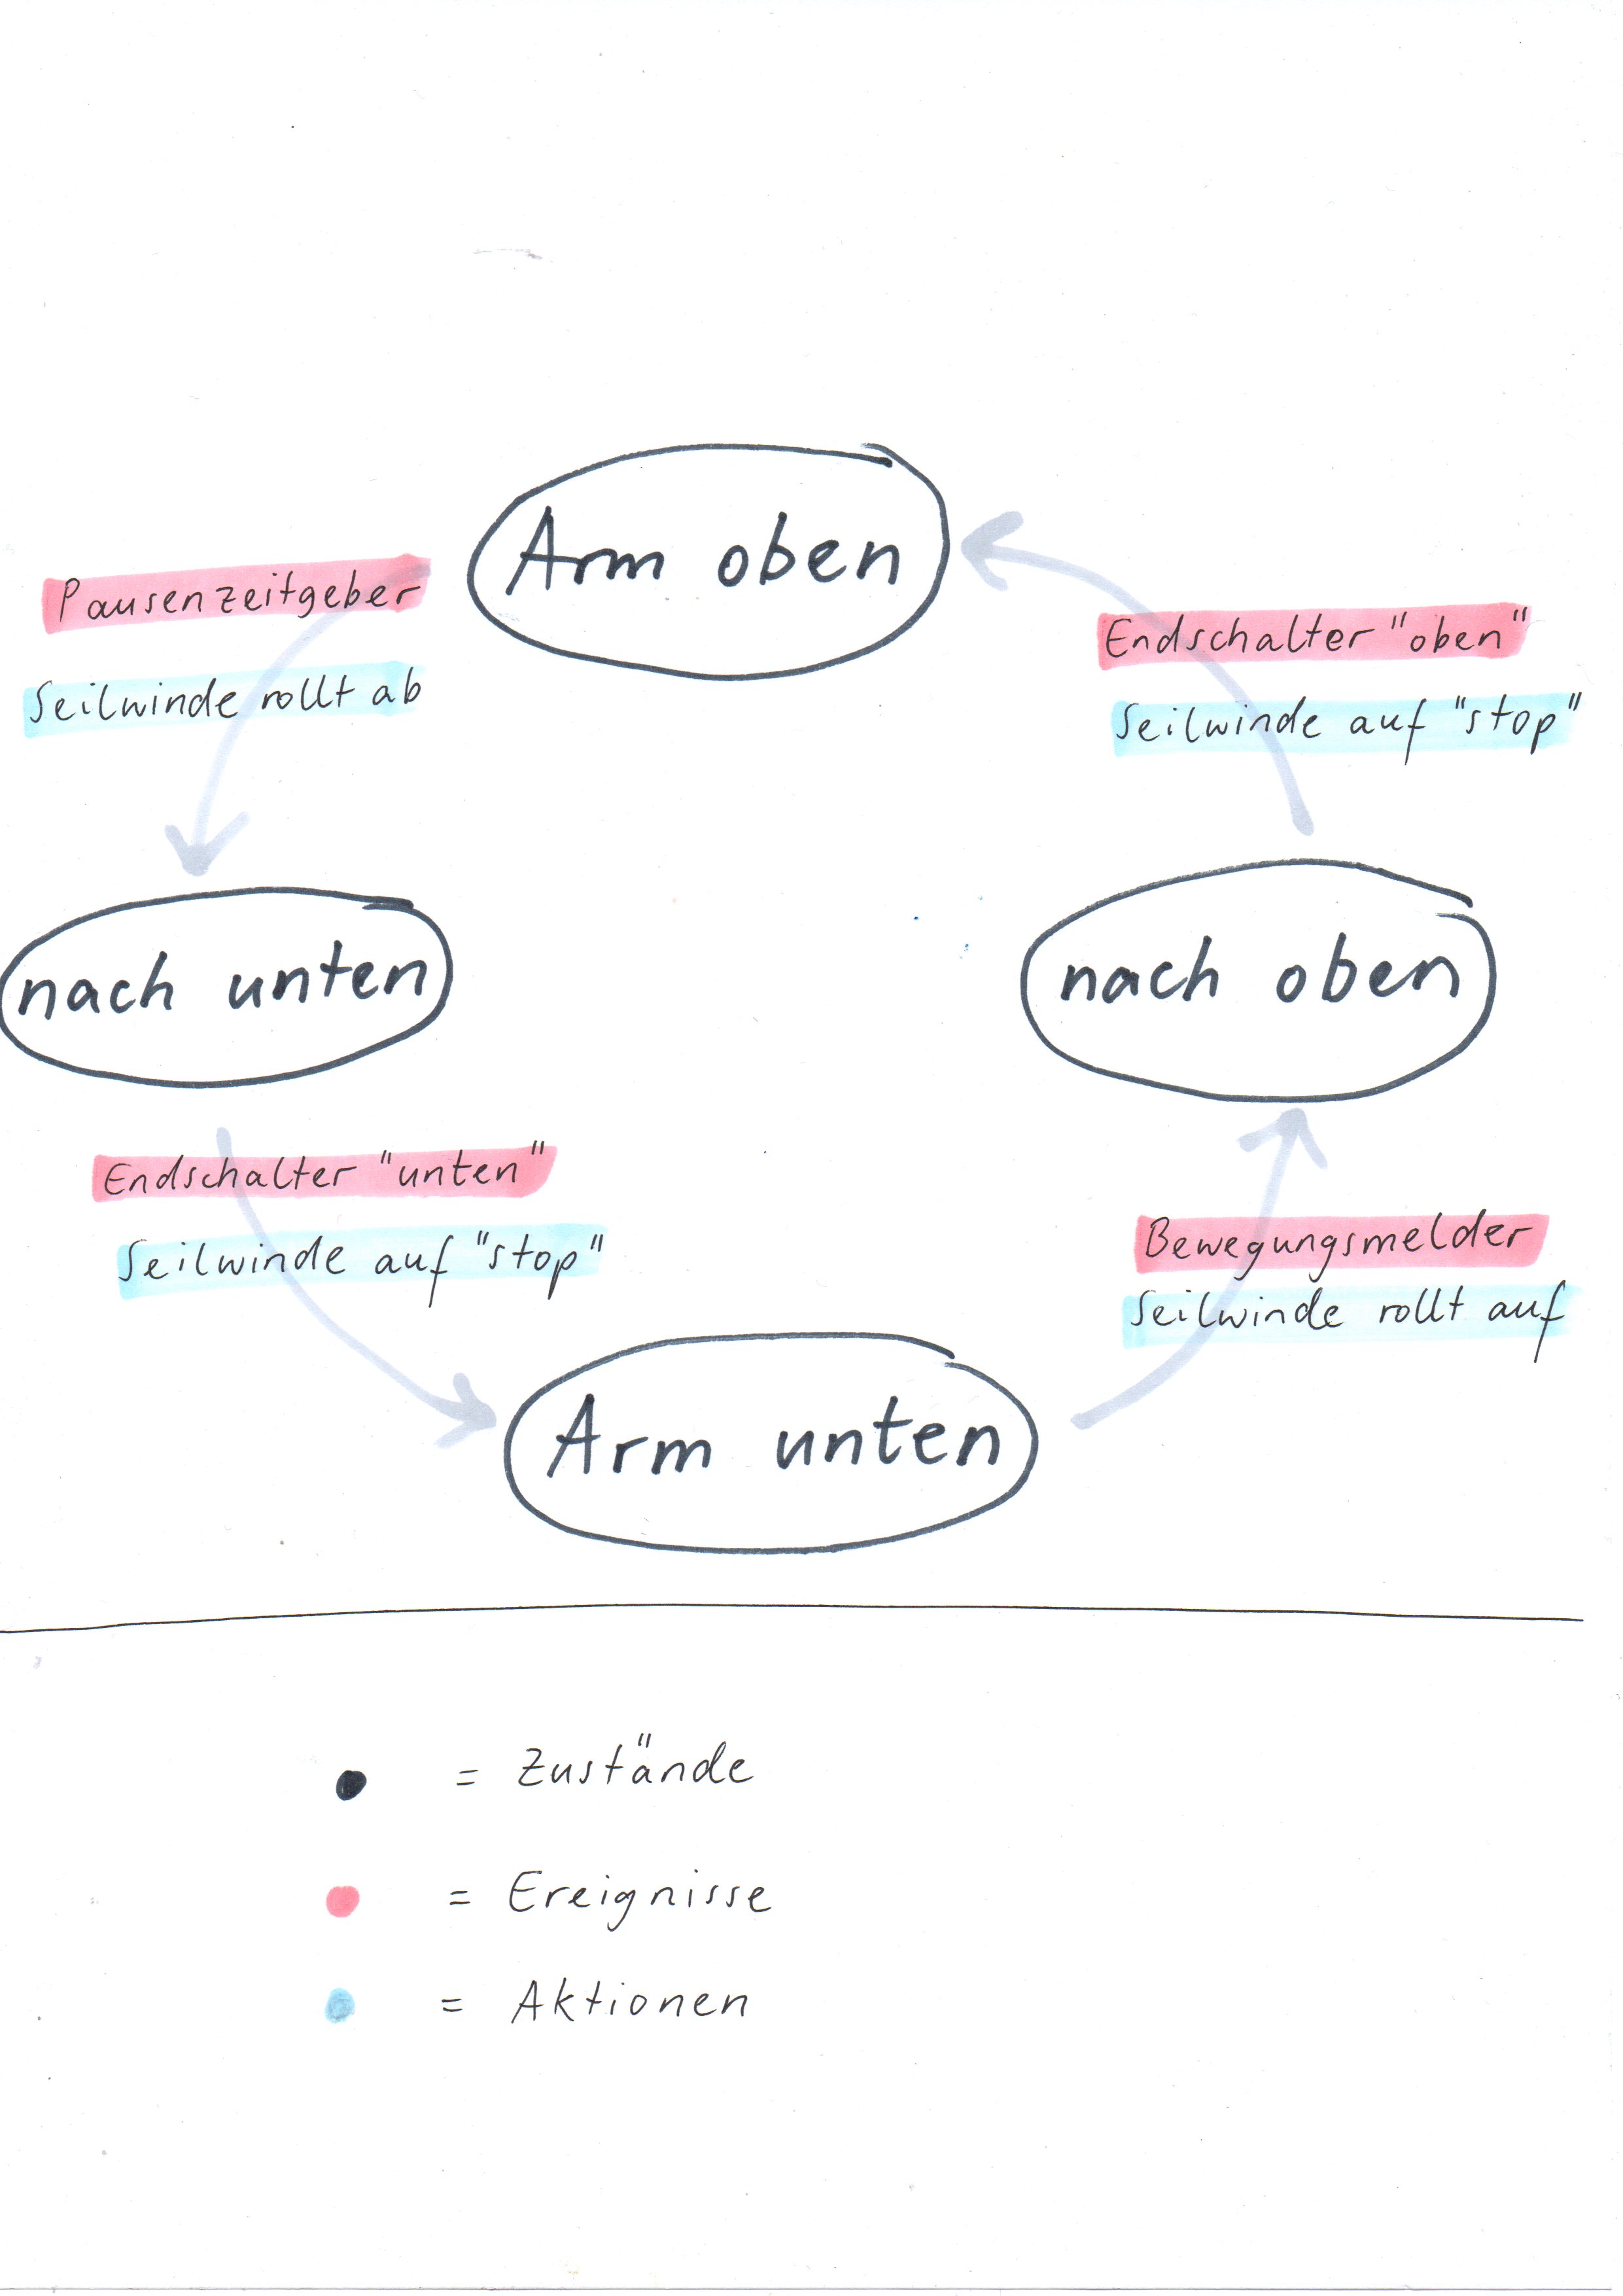 Arm oben
Pausenzeitgeber
Seilwinde rollt ab
Endschalter "oben"
Seilwinde auf "stop"
nach unten
nach oben
Endschalter "unten"
Seilwinde auf "stop"
Bewegungsmelder
Seilwinde rollt auf
Arm unten
= Zustände
= Ereignisse
= Aktionen